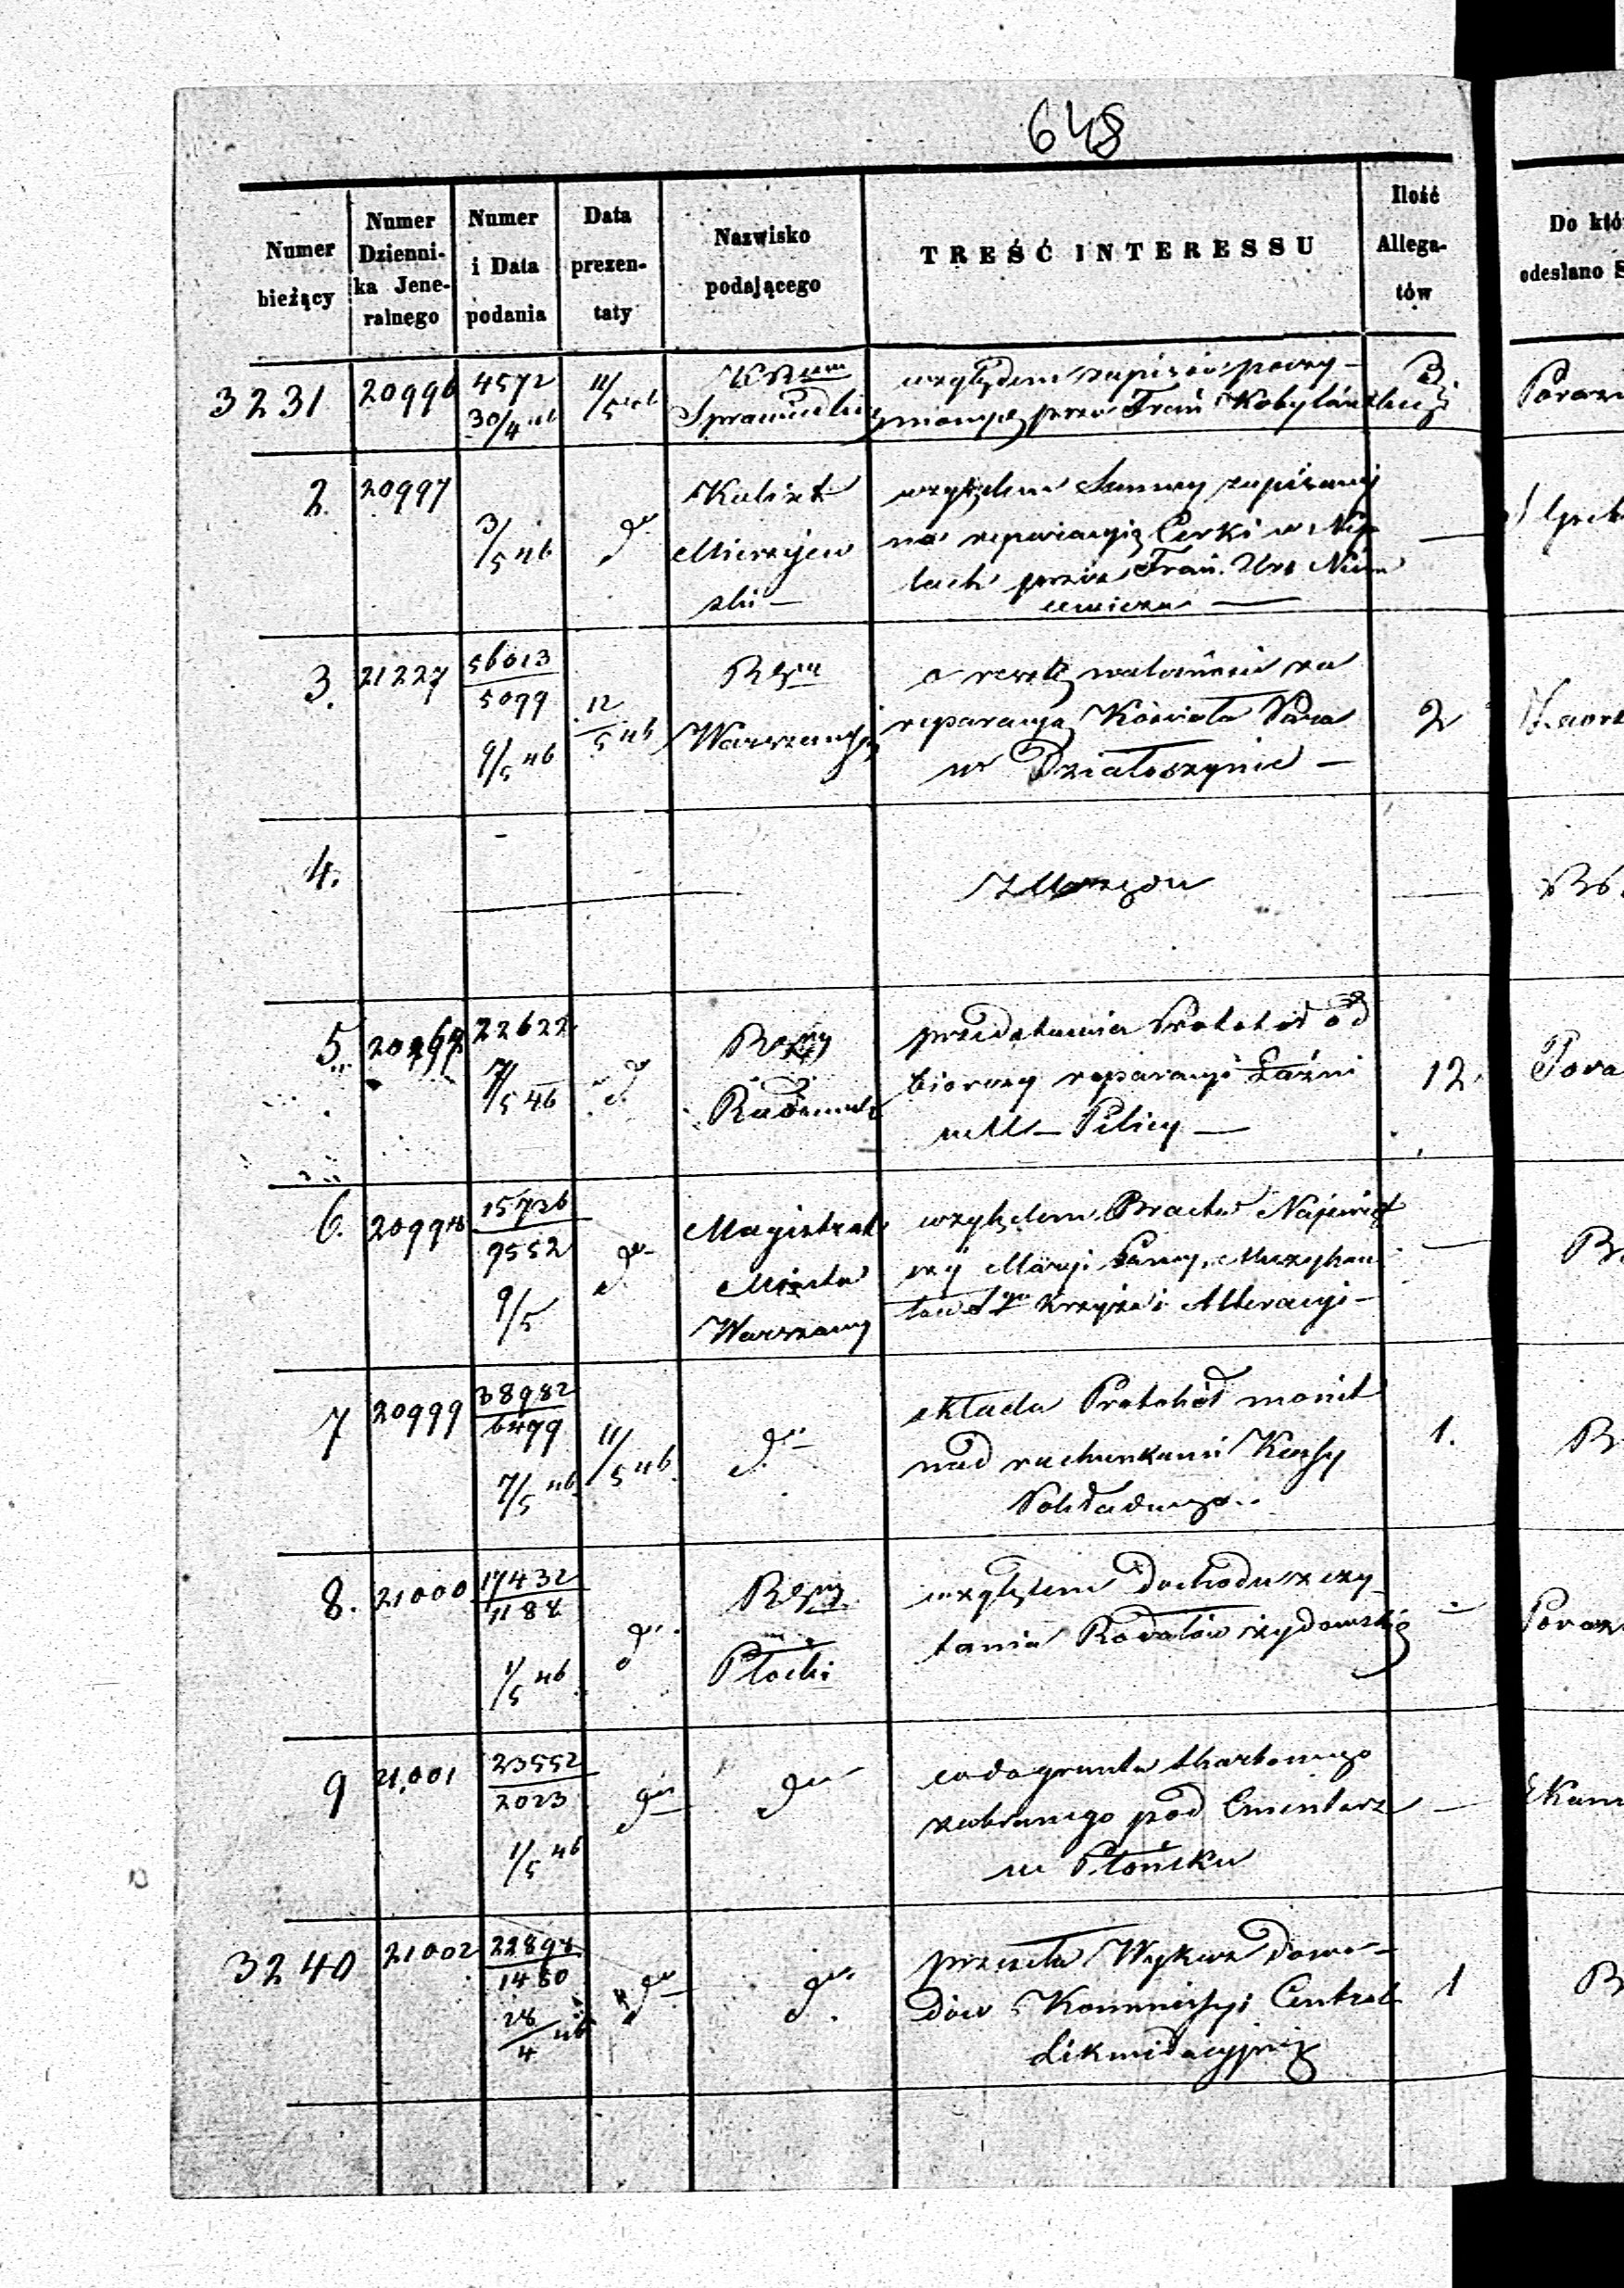 648
Numer bieżący
Numer Dzienni-ka Jene-ralnego
Numer i Data podania
Data prezen-taty
Nazwisko podającego
TREŚĆ INTERESSU
Ilość Allega-tów
Do któ
odesłano S
3231 20996 4572 30/4 46 11/5 46
Sprawiedli
względem zapisów poczy-
nionych przez Fran Kobylańskiego
2. 20997 3/5 46 do
Kalixt
Mierzejew
ski —
względem Summy zapisanej
na reparacyią Cerki w Nep
lach przez Fran. Urs Niem
cewicza —
3. 21227 56013 5099 9/5 46 12/5 46
Warszawsk
o resztę należności za
reparacyą Kościoła Para
w Działoszynie —
2
4.
5. 22622 7/5 46 do
Radomski
przedstawia Protokół od
biorczy reparacyi Łaźni
w M — Pilicy —
12.
6. 20998 15736 9552 9/5 do
Magistrat
Miasta
Warszawy
względem Bractw Najświęt
szej Maryi Panny, Muzykan
tów Sgo Krzyża i Alteracyi —
7 20999 38982 6499 7/5 46 11/5 46 do
składa Protokół monit
nad rachunkami Kassy
Pokładnego..
1.
8. 21000 17432 1188 1/5 46 do
Płocki
względem Dochodu z czy
tania Rodałów żydowskich
9 21,001 23552 2023 1/5 46 do do
co do gruntu skarbowego
zabranego pod Cmentarz
w Płońsku
3240 21002 22898 1480 28/4 46 do do
przesyła Wykaz Dowo-
dów Kommissyi Central
Likwidacyjnej
1